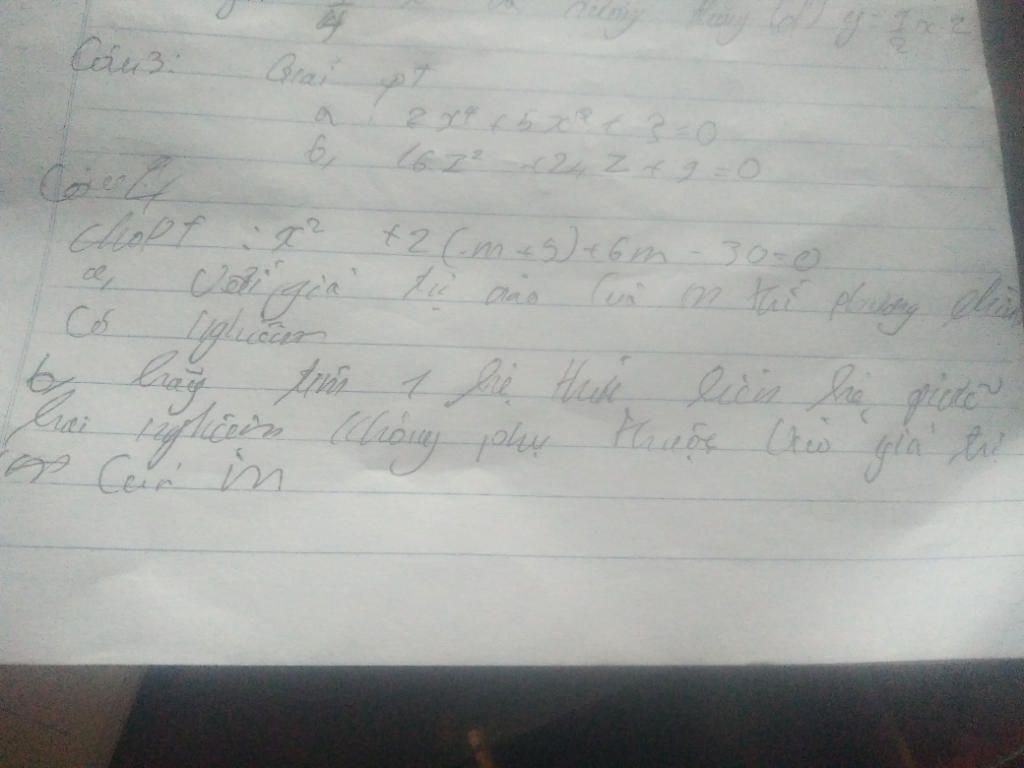 đường thẳng (d) y = 1/2 x - 2
Câu 3: Giải pt
a, 2x⁴ + 5x² + 3 = 0
b, 16z² + 24z + 9 = 0
Câu 4
cho PT : x² + 2(m + 5) + 6m - 30 = 0
a, Với giá trị nào của m thì phương trình
Có nghiệm
b, hãy tìm 1 hệ thức liên hệ giữa
hai nghiệm không phụ thuộc vào giá trị
của m